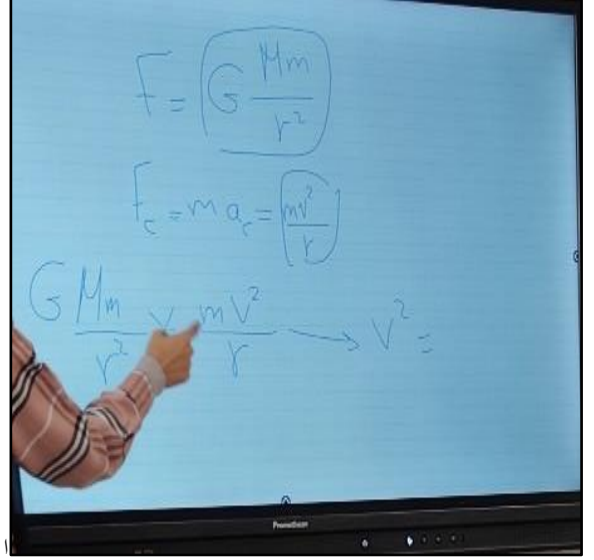 F = G Mm/r²
F_c = m a_c = mv²/r
G Mm/r² = mv²/r → v² =
Promethean